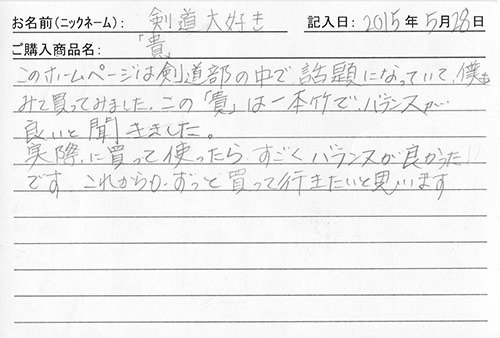 お名前(ニックネーム): 剣道大好き 記入日: 2015年 5月28日
ご購入商品名: 「貴」
このホームページは剣道部の中で話題になっていて、僕も
みて買ってみました。この「貴」は一本竹で、バランスが
良いと聞きました。
実際に買って使ったら、すごくバランスが良かった
です。これからも、ずっと買って行きたいと思います